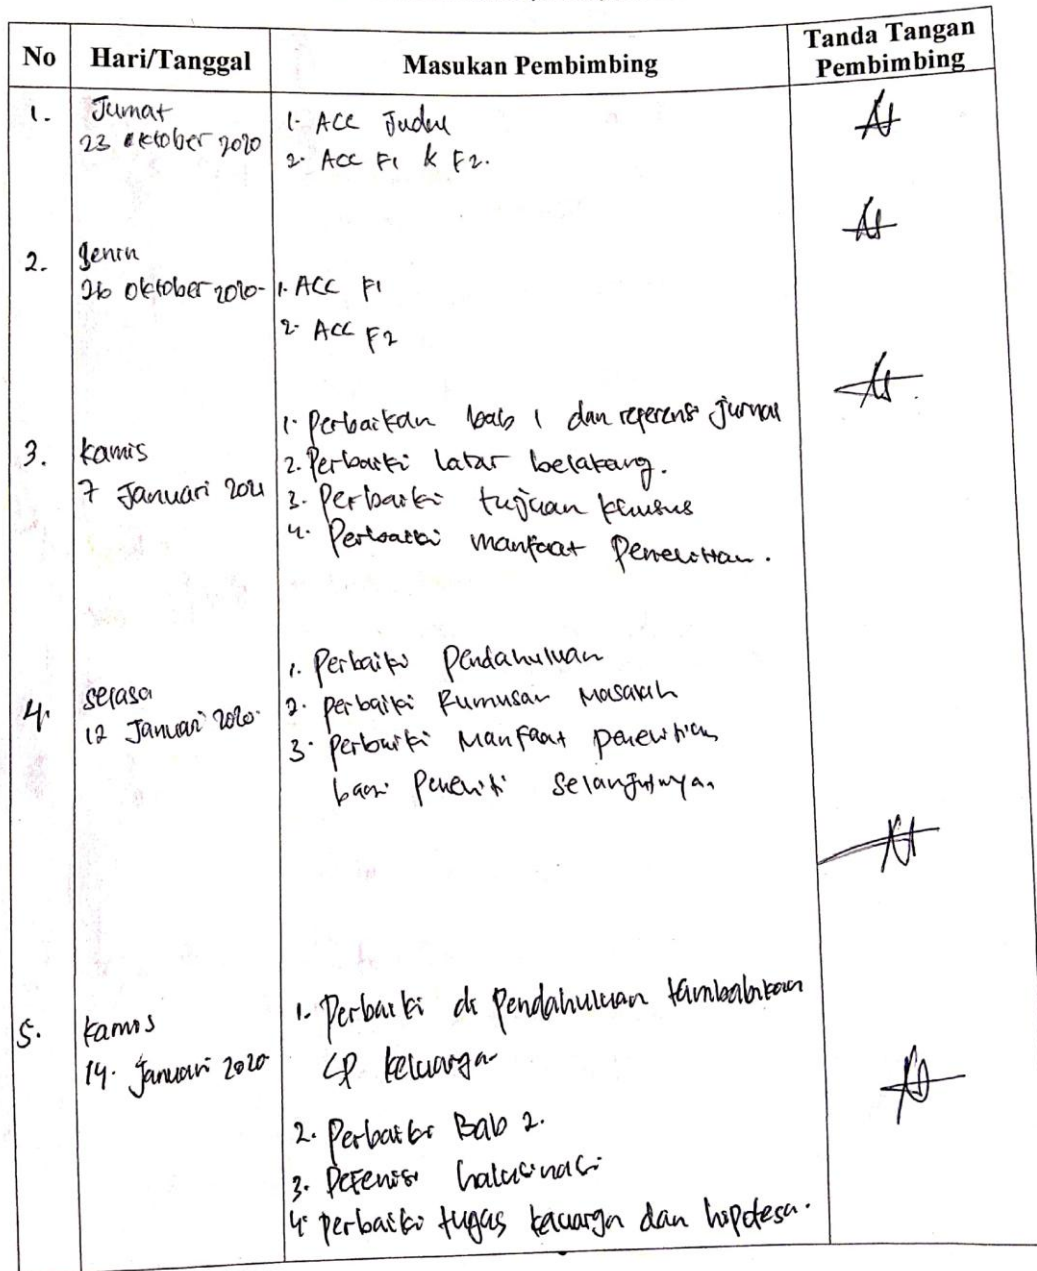 No Hari/Tanggal Masukan Pembimbing Tanda Tangan Pembimbing
1. Jumat
23 Oktober 2020
1. ACC Judul
2. ACC F1 & F2.
2. Senin
26 Oktober 2020
1. ACC F1
2. ACC F2
3. Kamis
7 Januari 2021
1. Perbaikan bab 1 dan referensi Jurnal
2. Perbaiki latar belakang.
3. Perbaiki tujuan khusus
4. Perbaiki manfaat Penelitian.
4. Selasa
12 Januari 2020.
1. Perbaiki Pendahuluan
2. Perbaiki Rumusan Masalah
3. Perbaiki Manfaat penelitian
bagi Peneliti Selanjutnya.
5. Kamis
14. Januari 2020
1. Perbaiki di Pendahuluan tambahkan
SP keluarga
2. Perbaiki Bab 2.
3. Defenisi halusinasi
4. Perbaiki tugas keluarga dan hipotesa.